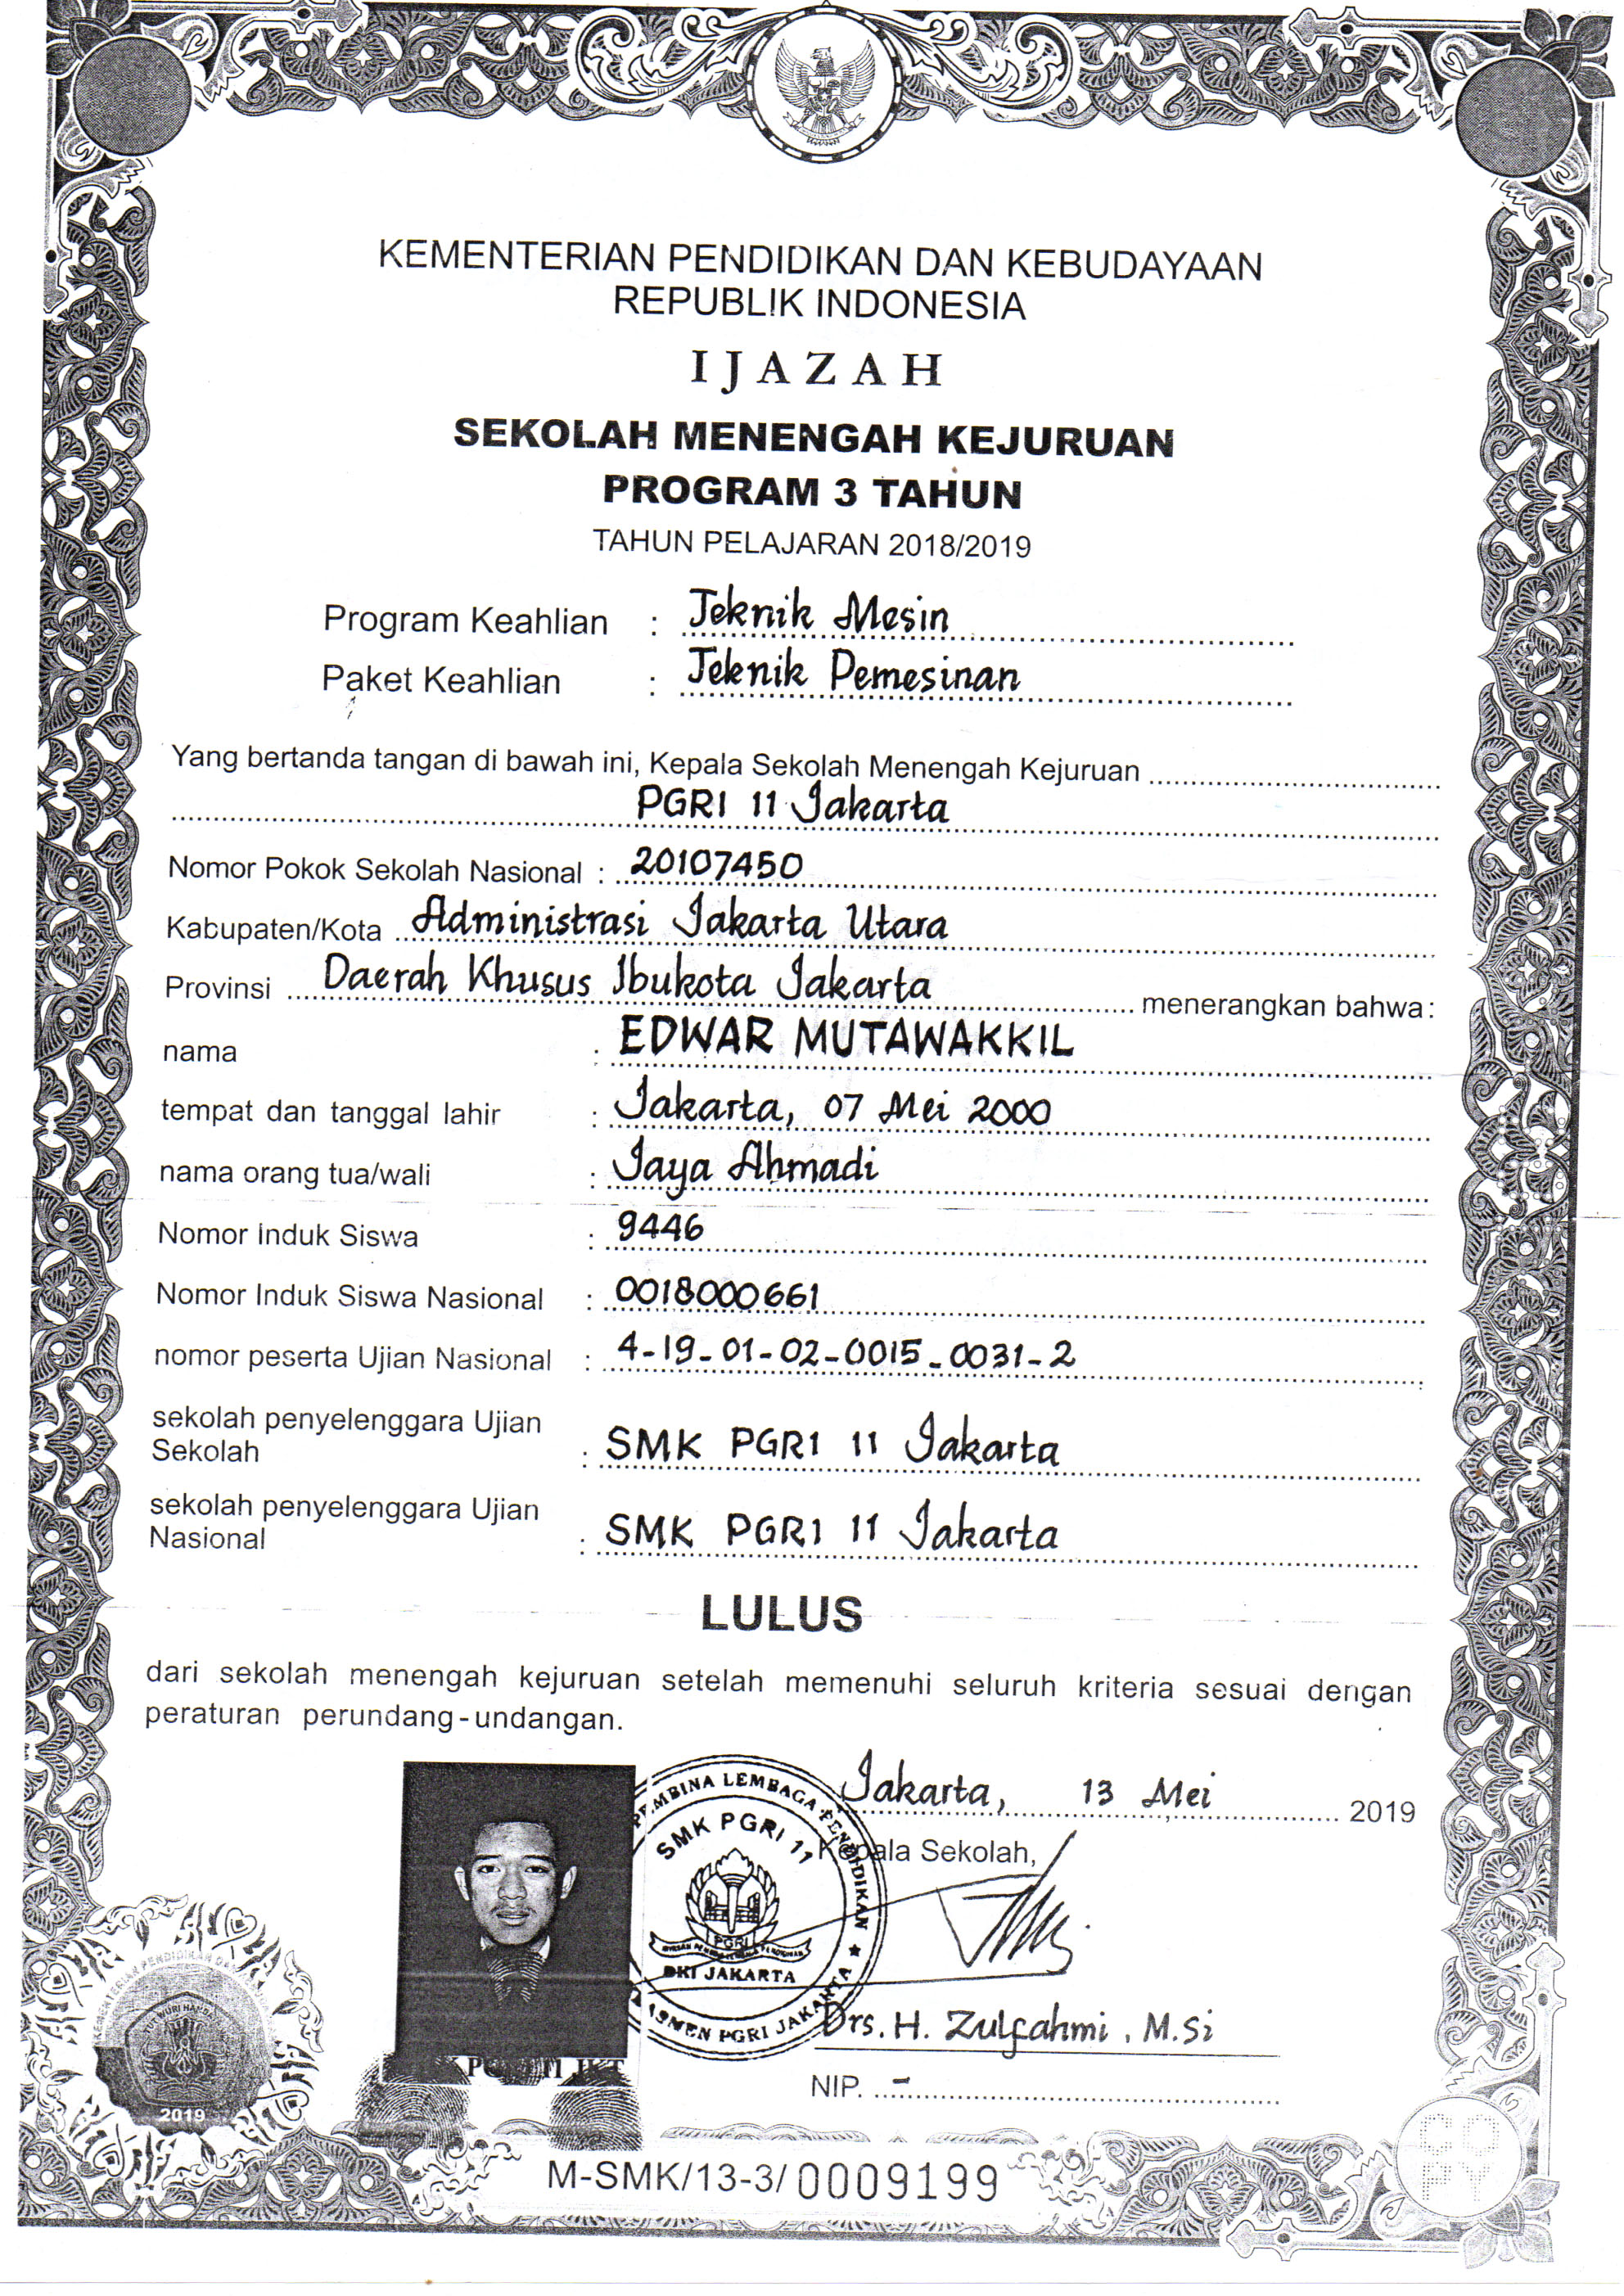 KEMENTERIAN PENDIDIKAN DAN KEBUDAYAAN
REPUBLIK INDONESIA
IJAZAH
SEKOLAH MENENGAH KEJURUAN
PROGRAM 3 TAHUN
TAHUN PELAJARAN 2018/2019
Program Keahlian : Teknik Mesin
Paket Keahlian : Teknik Pemesinan
Yang bertanda tangan di bawah ini, Kepala Sekolah Menengah Kejuruan
PGRI 11 Jakarta
Nomor Pokok Sekolah Nasional : 20107450
Kabupaten/Kota Administrasi Jakarta Utara
Provinsi Daerah Khusus Ibukota Jakarta menerangkan bahwa:
nama : EDWAR MUTAWAKKIL
tempat dan tanggal lahir : Jakarta, 07 Mei 2000
nama orang tua/wali : Jaya Ahmadi
Nomor Induk Siswa : 9446
Nomor Induk Siswa Nasional : 0018000661
nomor peserta Ujian Nasional : 4-19-01-02-0015-0031-2
sekolah penyelenggara Ujian
Sekolah : SMK PGRI 11 Jakarta
sekolah penyelenggara Ujian
Nasional : SMK PGRI 11 Jakarta
LULUS
dari sekolah menengah kejuruan setelah memenuhi seluruh kriteria sesuai dengan
peraturan perundang-undangan.
Jakarta, 13 Mei 2019
Kepala Sekolah,
PEMBINA LEMBAGA PENDIDIKAN
SMK PGRI 11
PGRI
DKI JAKARTA
PGRI JAKARTA
Drs. H. Zulfahmi, M.Si
NIP. -
TUT WURI HANDAYANI
2019
M-SMK/13-3/0009199
COPY